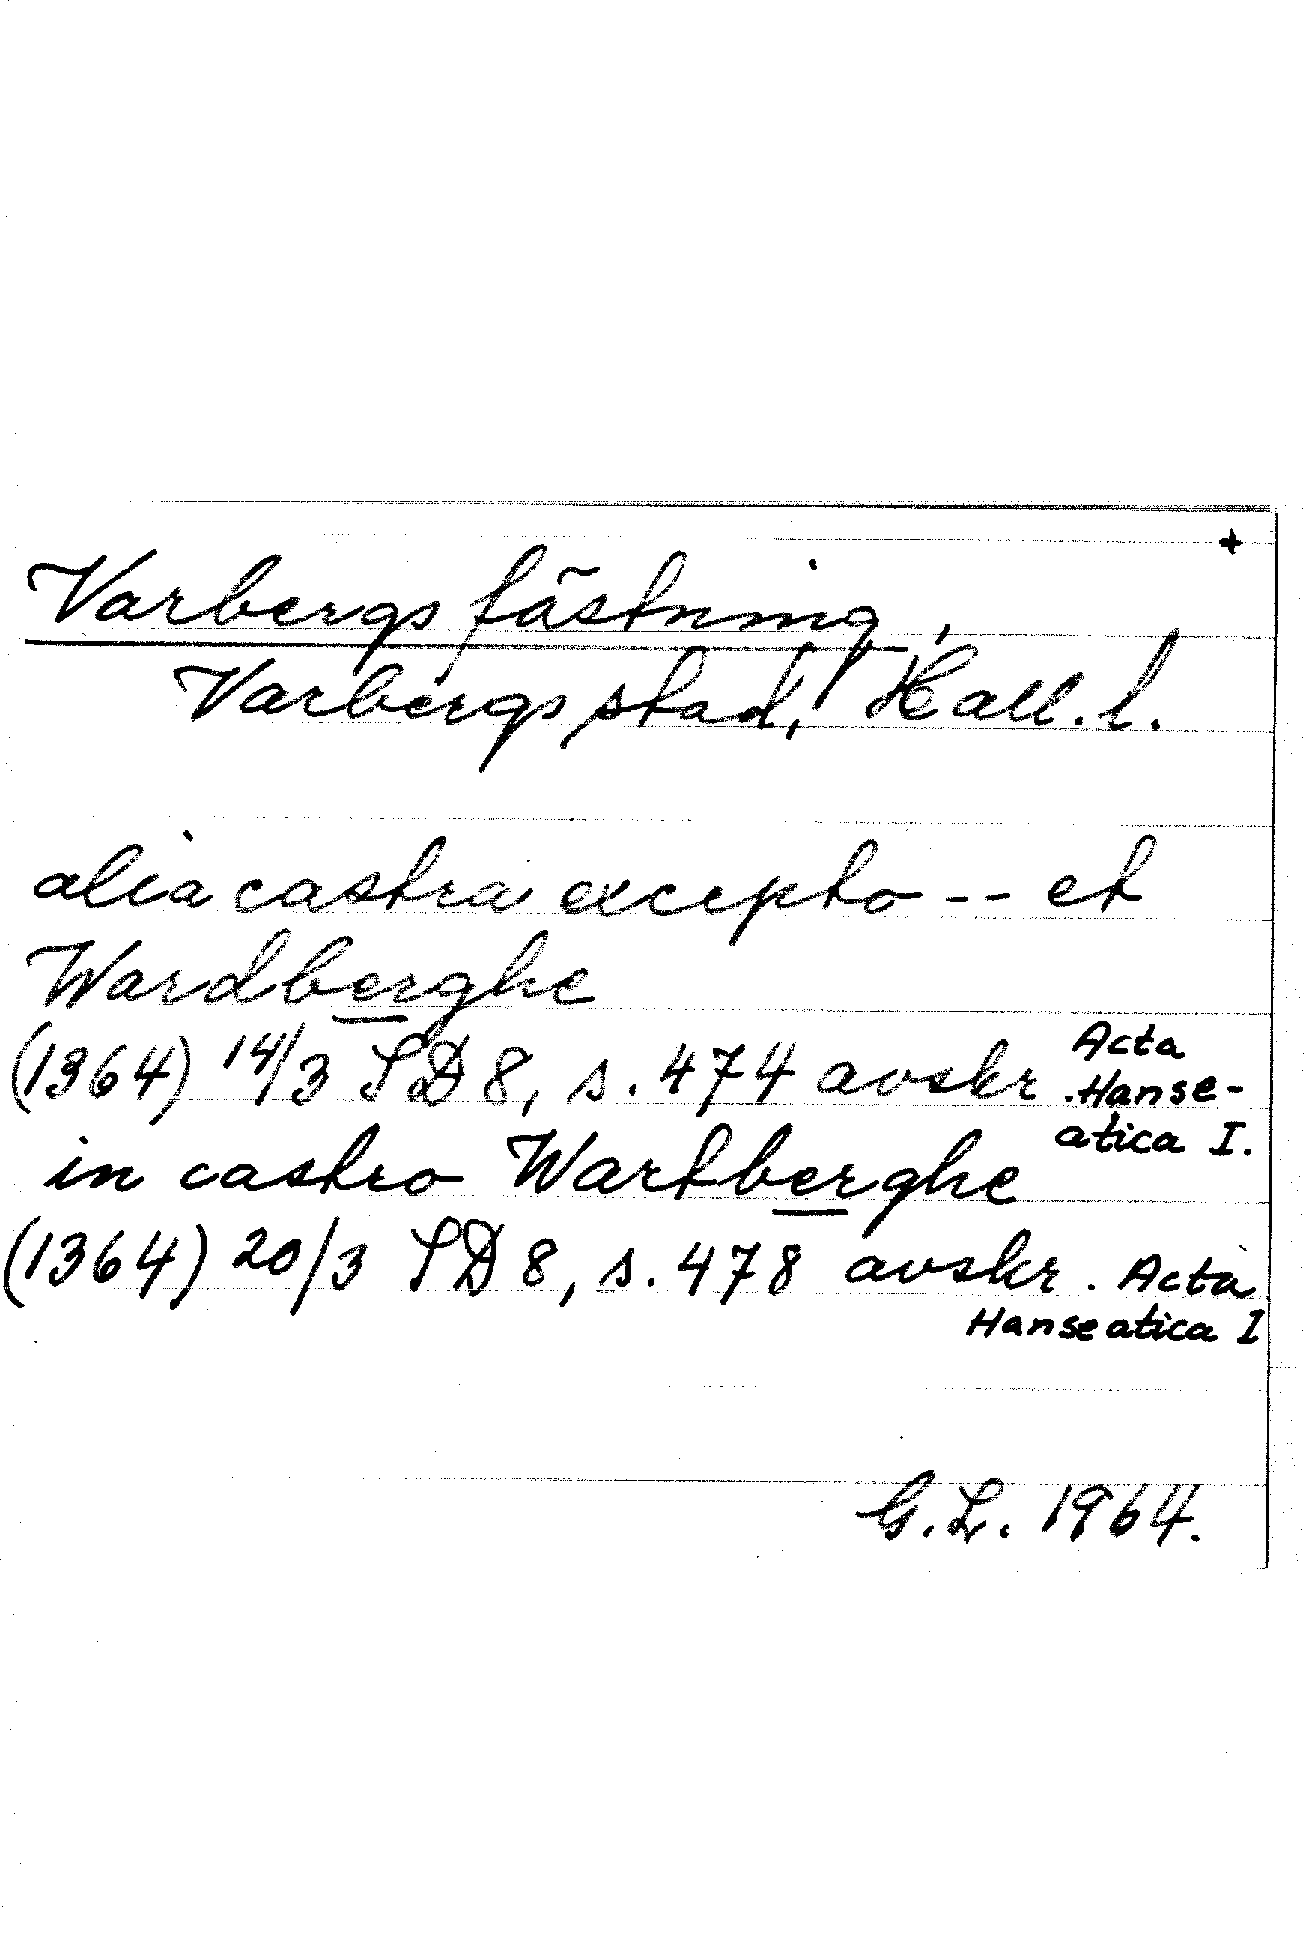 +
Varbergs fästning,
Varbergs stad, Hall. l.
alia castra excepto -- et
Wardberghe
(1364) 14/3 SD 8, s. 474 avskr. Acta
Hanse-
atica I.
in castro Wartberghe
(1364) 20/3 SD 8, s. 478 avskr. Acta
Hanseatica I
G.L. 1964.